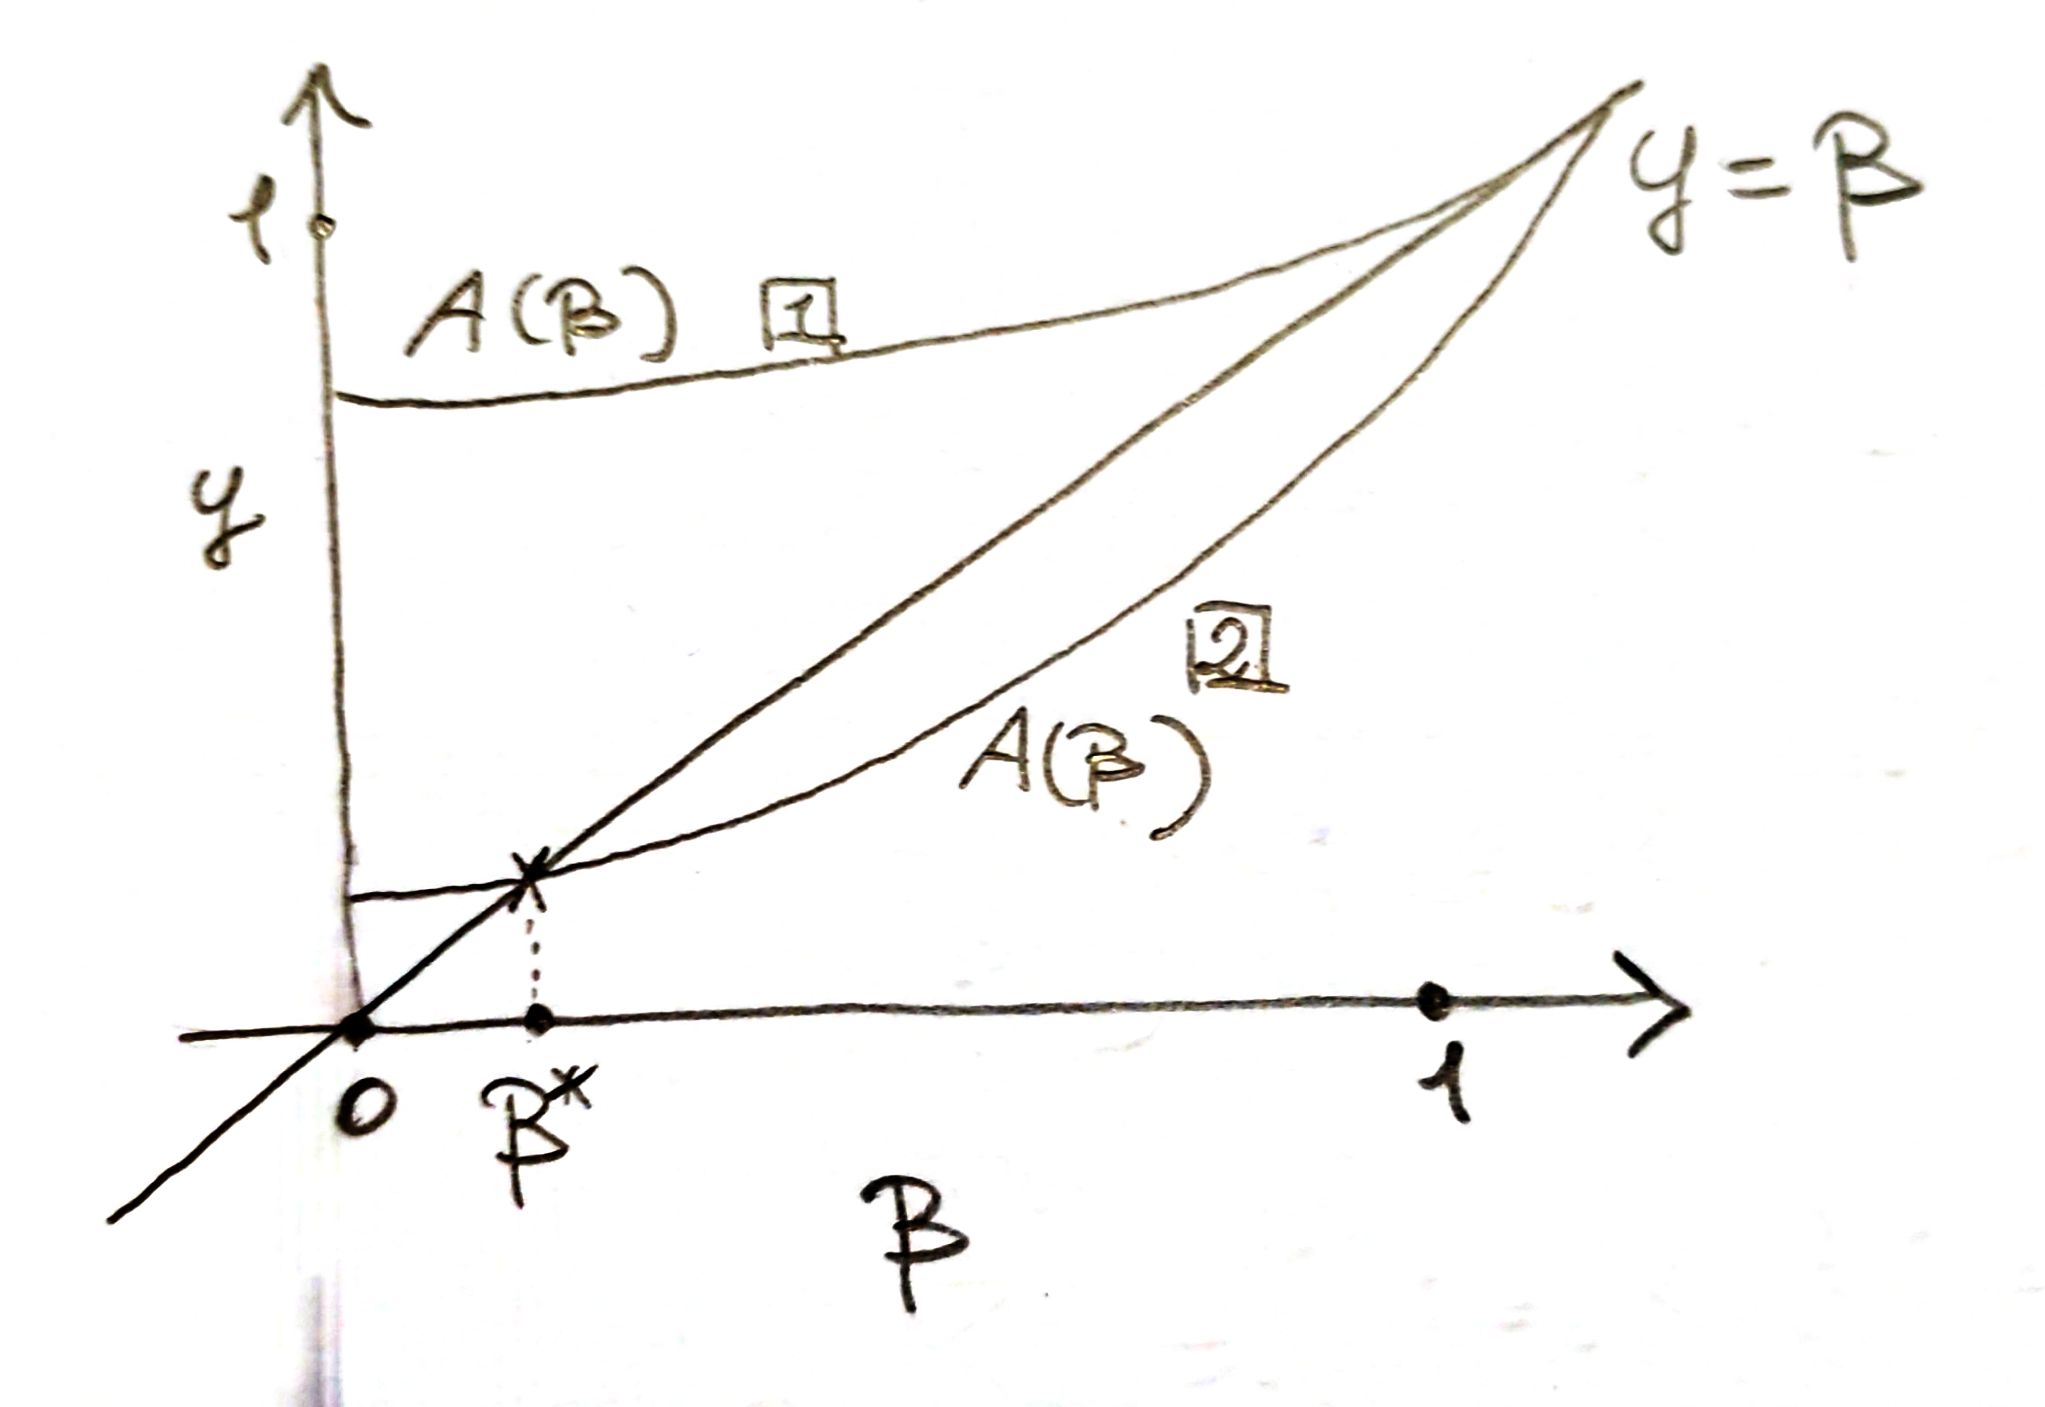 1
y = β
A(β) 1
y
2
A(β)
0
β*
1
β